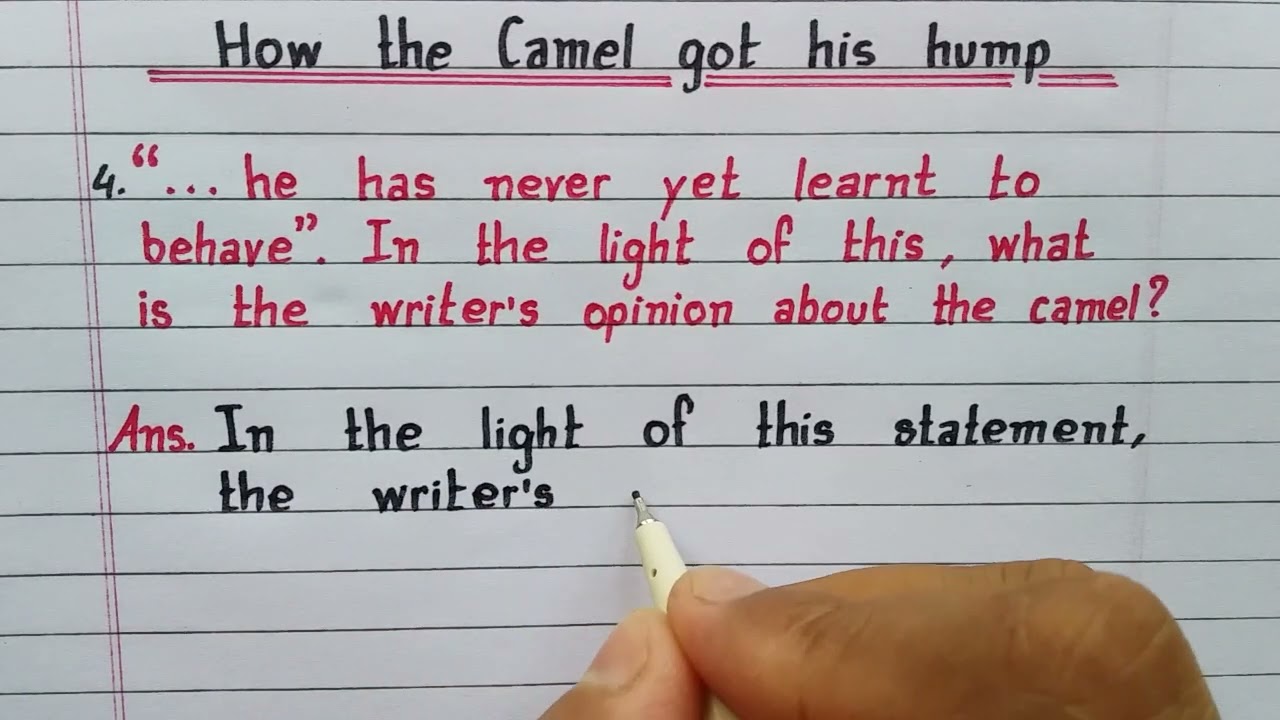 How the Camel got his hump
4. “... he has never yet learnt to
behave”. In the light of this, what
is the writer's opinion about the camel?
Ans. In the light of this statement,
the writer's